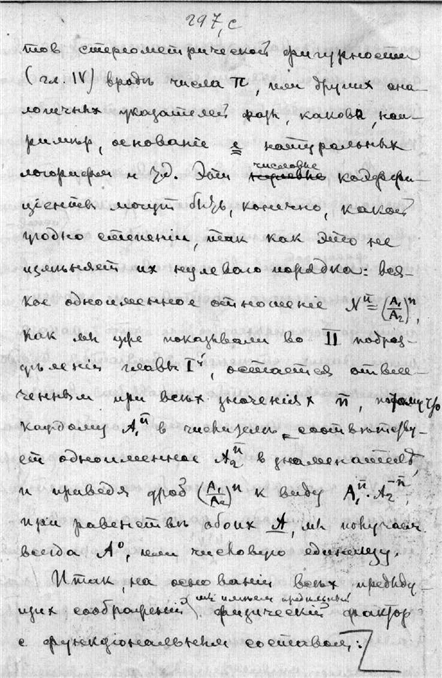 297, с
тов стереометрической фигурности
(гл. IV) вродѣ числа π, или других ана
логичных указателей фазы, каково, нап
римѣр, основаніе e натуральных
логарифмов и т.д. Эти числовые коэффи
ціенты могут быть, конечно, какой
угодно степени, так как это не
измѣняет их нулевого порядка: вся
кое одноименное отношеніе N^n = (A₁/A₂)^n,
как мы уже показывали во II подраз
дѣленіи главы I, остается отвле
ченным при всѣх значеніях n, потому что
каждому A₁^n в числителѣ соотвѣтству
ет одноименное A₂^n в знаменателѣ,
и приведя дробь (A₁/A₂)^n к виду A₁^n · A₂^-n,
при равенствѣ обоих A, мы получаем
всегда A⁰, или числовую единицу.
Итак, на основаніи всѣх предыду
щих соображеній мы имѣем
физическій фактор
с функціональным составом: